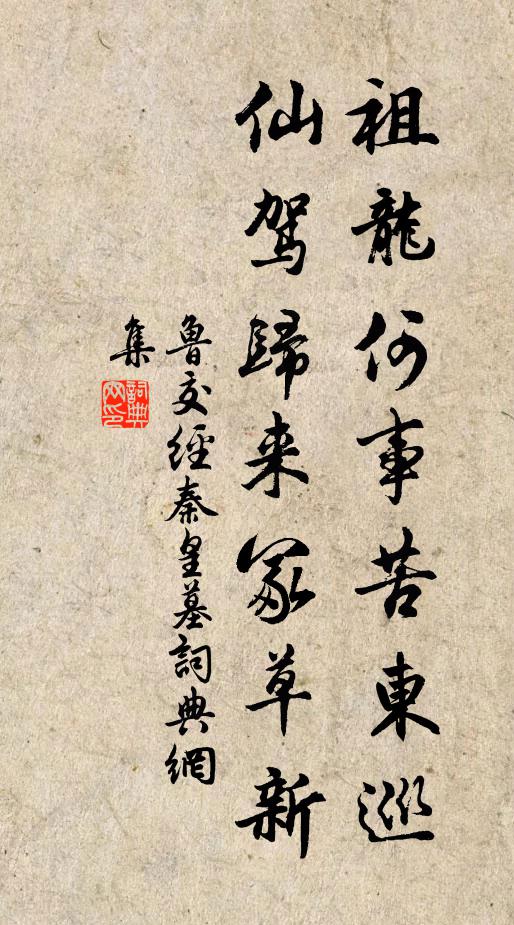 祖龍何事苦東巡
仙驾歸来冢草新
魯交經秦皇墓詞典網
集
詞典
网印